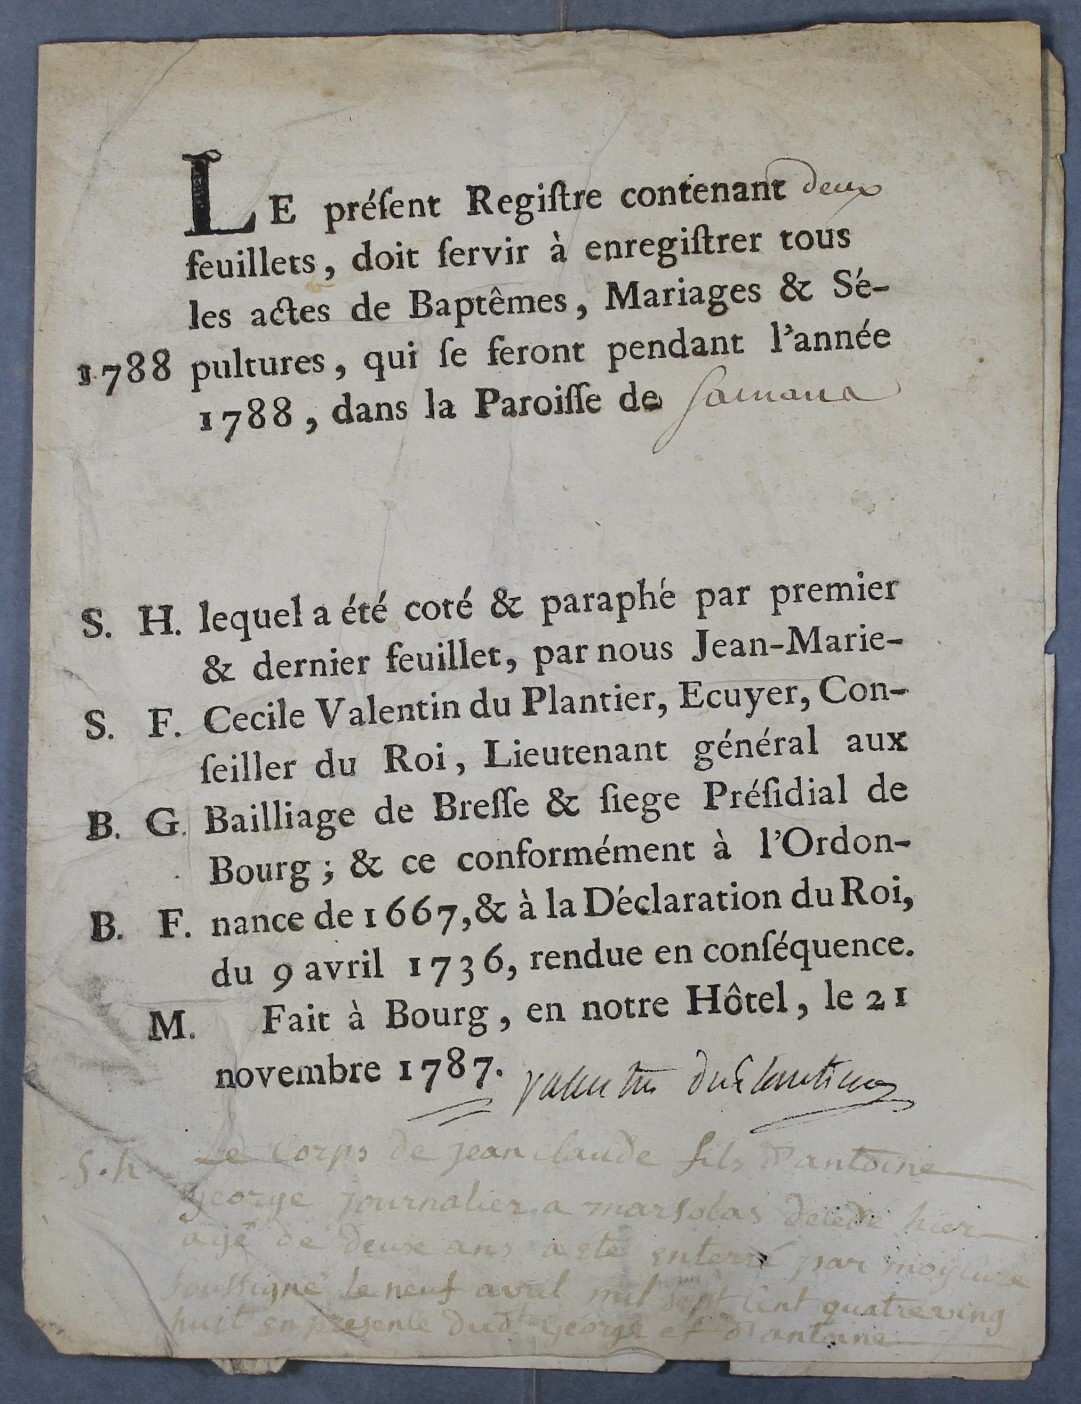 LE préſent Regiſtre contenant deux
feuillets, doit ſervir à enregiſtrer tous
les actes de Baptêmes, Mariages & Sé-
1788 pultures, qui ſe feront pendant l'année
1788, dans la Paroiſſe de
S. H. lequel a été coté & paraphé par premier
& dernier feuillet, par nous Jean-Marie-
S. F. Cecile Valentin du Plantier, Ecuyer, Con-
ſeiller du Roi, Lieutenant général aux
B. G. Bailliage de Breſſe & ſiege Préſidial de
Bourg ; & ce conformément à l'Ordon-
B. F. nance de 1667, & à la Déclaration du Roi,
du 9 avril 1736, rendue en conſéquence.
M. Fait à Bourg, en notre Hôtel, le 21
novembre 1787. Valentin duPlantier
S. h Le Corps de jean claude fils d'antoine
George journalier a marsolas decedé hier
agé de deux ans a eté enterré par moy
soussigné le neuf avril mil sept cent quatreving
huit en presence dud George et d'antoine